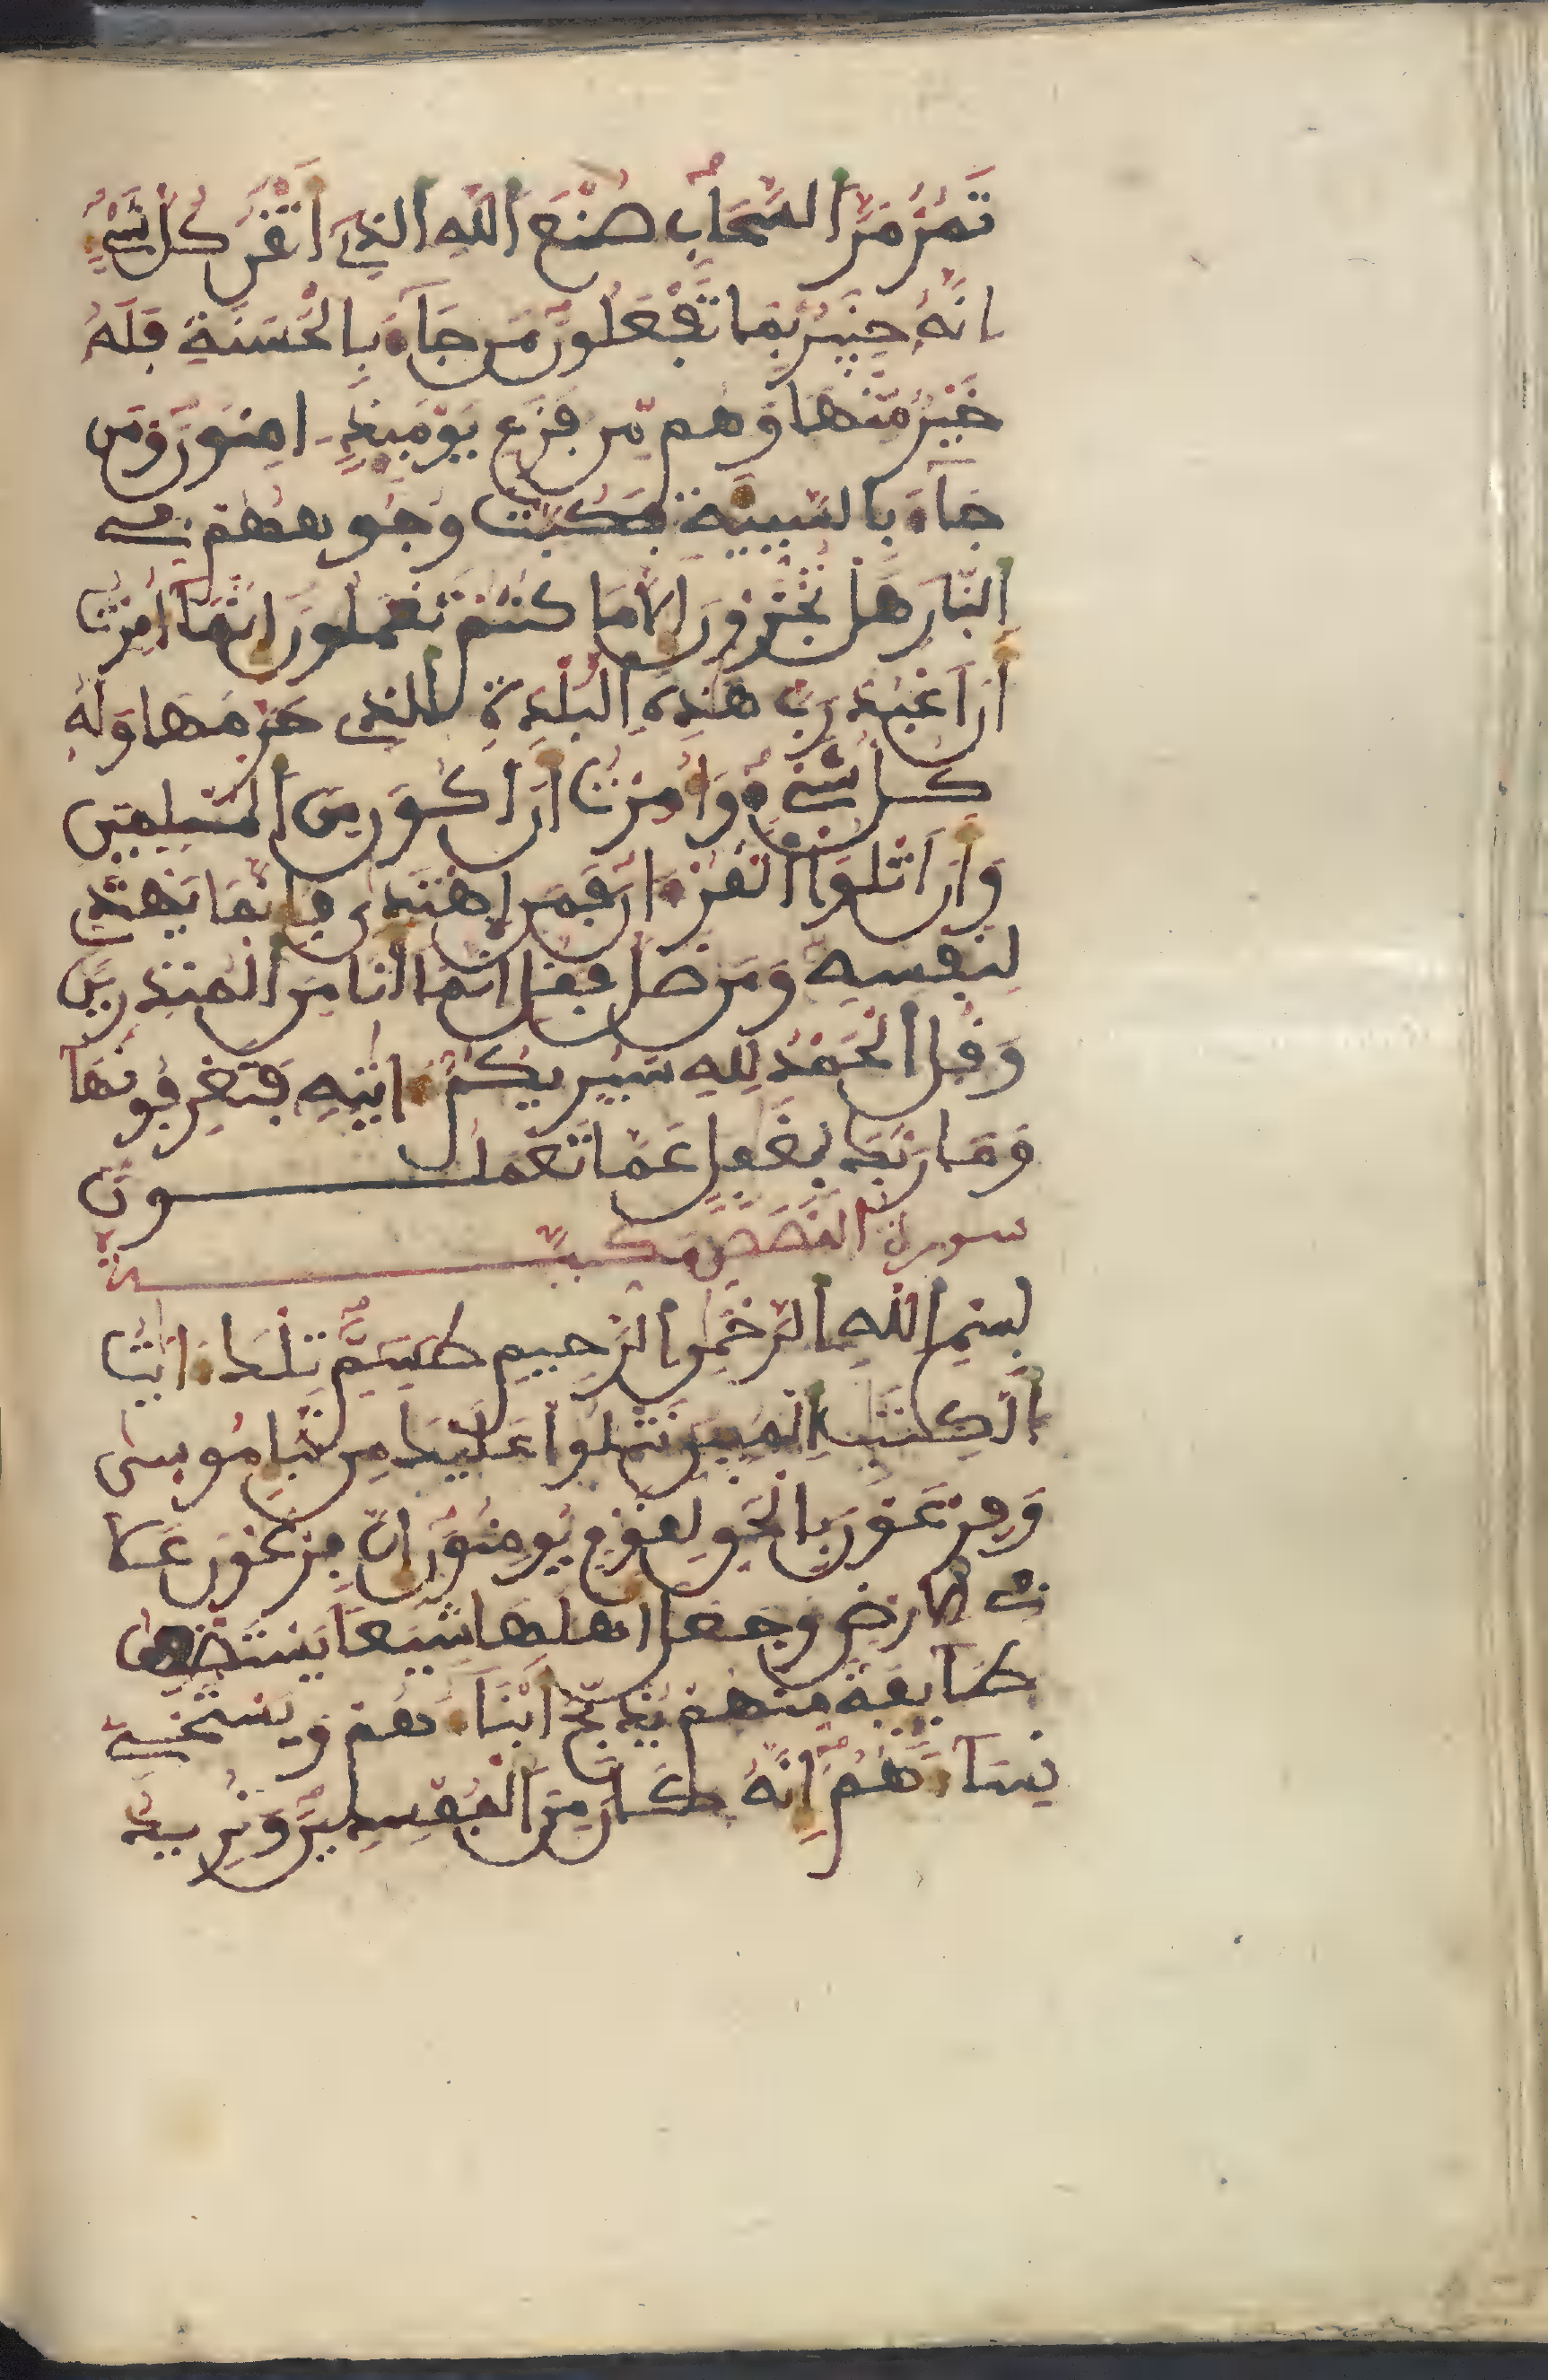 تَمُرُّ مَرَّ اَ۬لسَّحَابِ صُنْعَ اَ۬للَّهِ اِ۬لذِےٓ أَتْقَنَ كُلَّ شَےْءٍ
اِنَّهُۥ خَبِيرُۢ بِمَا تَفْعَلُونَ مَن جَآءَ بِالْحَسَنَةِ فَلَهُۥ
خَيْرٌ مِّنْهَا وَهُم مِّن فَزَعِ يَوْمَئِذٍ اٰمِنُونَ وَمَن
جَآءَ بِالسَّيِّئَةِ فَكُبَّتْ وُجُوهُهُمْ فِے
اِ۬لنّ۪ارِ هَلْ تُجْزَوْنَ إِلَّا مَا كُنتُمْ تَعْمَلُونَ إِنَّمَآ أُمِرْتُ
أَنَ اَعْبُدَ رَبَّ هَٰذِهِ اِ۬لْبَلْدَةِ اِ۬لذِے حَرَّمَهَا وَلَهُۥ
كُلُّ شَےْءٍ وَأُمِرْتُ أَنَ اَكُونَ مِنَ اَ۬لْمُسْلِمِينَ
وَأَنَ اَتْلُوَاْ اَ۬لْقُرْءَانَ فَمَنِ اِ۪هْتَد۪ىٰ فَإِنَّمَا يَهْتَدِے
لِنَفْسِهِۦ وَمَن ضَلَّ فَقُلِ اِنَّمَآ أَنَا مِنَ اَ۬لْمُنذِرِينَ
وَقُلِ اِ۬لْحَمْدُ لِلهِ سَيُرِيكُمُۥٓ ءَايَٰتِهِۦ فَتَعْرِفُونَهَا
وَمَا رَبُّكَ بِغَٰفِلٍ عَمَّا تَعْمَلُونَ
سورة القصص مكية
بِسْمِ اِ۬للَّهِ اِ۬لرَّحْمَٰنِ اِ۬لرَّحِيمِ طَسِٓمِّٓ تِلْكَ ءَايَٰتُ
اُ۬لْكِتَٰبِ اِ۬لْمُبِينِ نَتْلُواْ عَلَيْكَ مِن نَّبَإِ مُوس۪ىٰ
وَفِرْعَوْنَ بِالْحَقِّ لِقَوْمٍ يُومِنُونَ إِنَّ فِرْعَوْنَ عَلَا
فِے اِ۬لَارْضِ وَجَعَلَ أَهْلَهَا شِيَعاً يَسْتَضْعِفُ
طَآئِفَةً مِّنْهُمْ يُذَبِّحُ أَبْنَآءَهُمْ وَيَسْتَحْيِے
نِسَآءَهُمُۥٓ إِنَّهُۥ كَانَ مِنَ اَ۬لْمُفْسِدِينَ وَنُرِيدُ